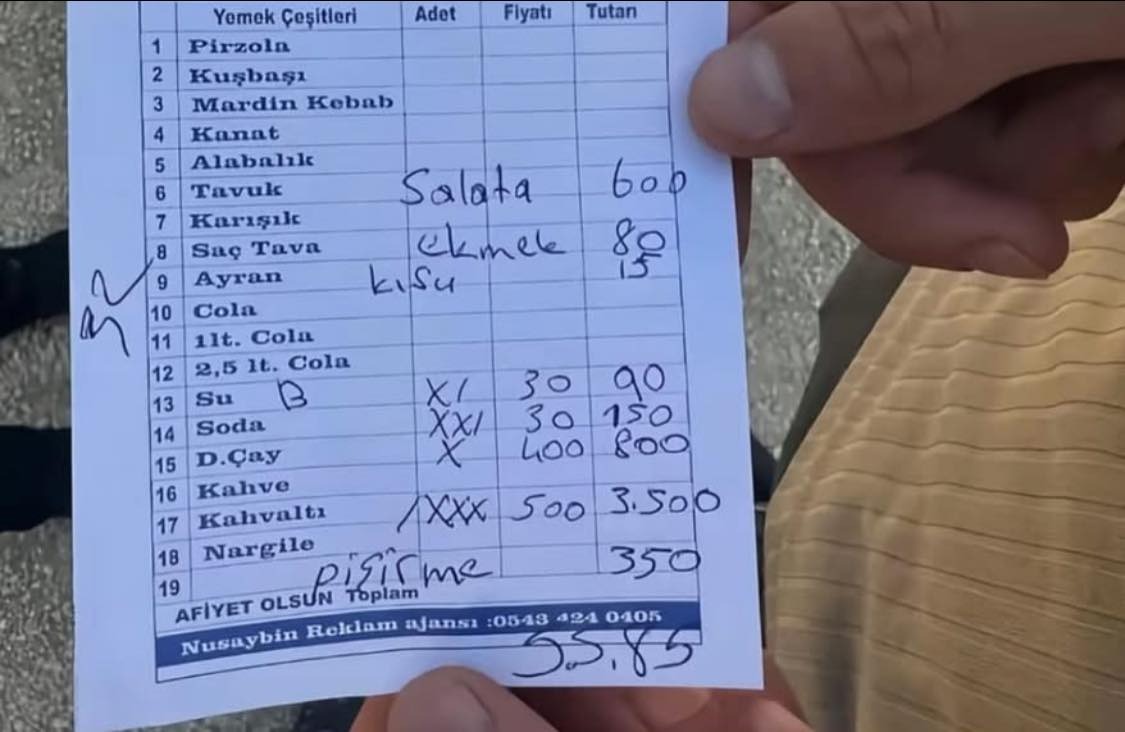 Yemek Çeşitleri Adet Fiyatı Tutarı
1 Pirzola
2 Kuşbaşı
3 Mardin Kebab
4 Kanat
5 Alabalık
6 Tavuk Salata 600
7 Karışık
8 Saç Tava ekmek 80
9 Ayran k.su 15
10 Cola
11 1lt. Cola
12 2,5 lt. Cola
13 Su B X/ 30 90
14 Soda XX/ 30 150
15 D.Çay X 400 800
16 Kahve
17 Kahvaltı /XXX 500 3.500
18 Nargile
19 pişirme 350
AFİYET OLSUN Toplam
Nusaybin Reklam ajansı :0543 424 0405
55.85